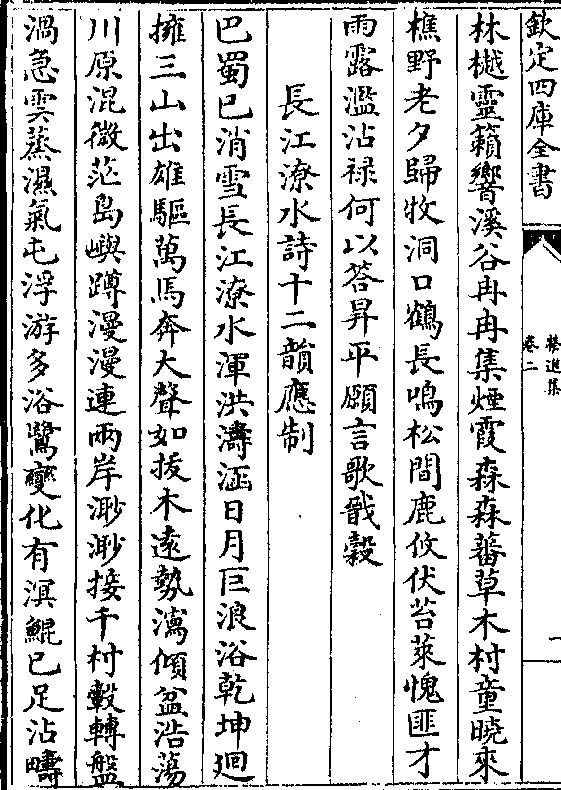 欽定四庫全書
卷二
林樾靈籟響溪谷冉冉集煙霞森森蕃草木村童曉來
樵野老夕歸牧洞口鶴長鳴松間鹿攸伏苔萊愧匪才
雨露濫沾祿何以答昇平願言歌戩穀
長江潦水詩十二韻應制
巴蜀已消雪長江潦水渾洪濤涵日月巨浪浴乾坤迴
擁三山出雄驅萬馬奔大聲如拔木遠勢瀉傾盆浩蕩
川原混微茫島嶼蹲漫漫連兩岸渺渺接千村轂轉盤
渦急雲蒸濕氣屯浮游多浴鷺變化有溟鯤已足沾疇